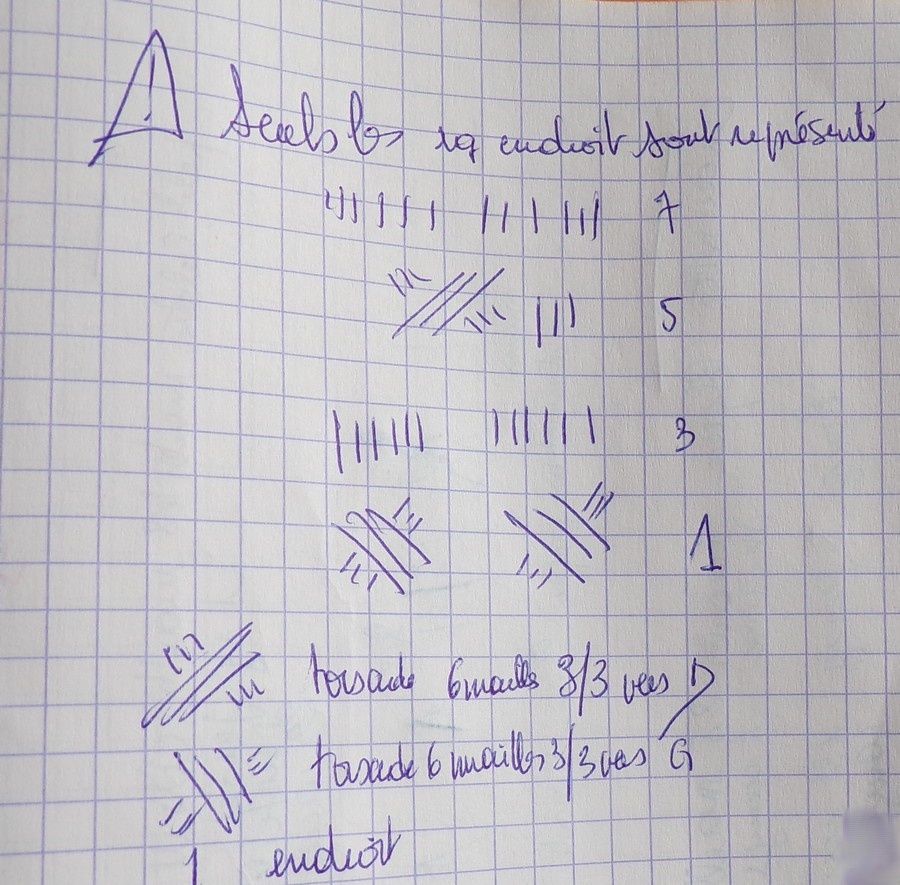 A Seuls les rg endroit sont représenté
7
5
3
1
torsade 6 mailles 3/3 vers D
torsade 6 mailles 3/3 vers G
endroit